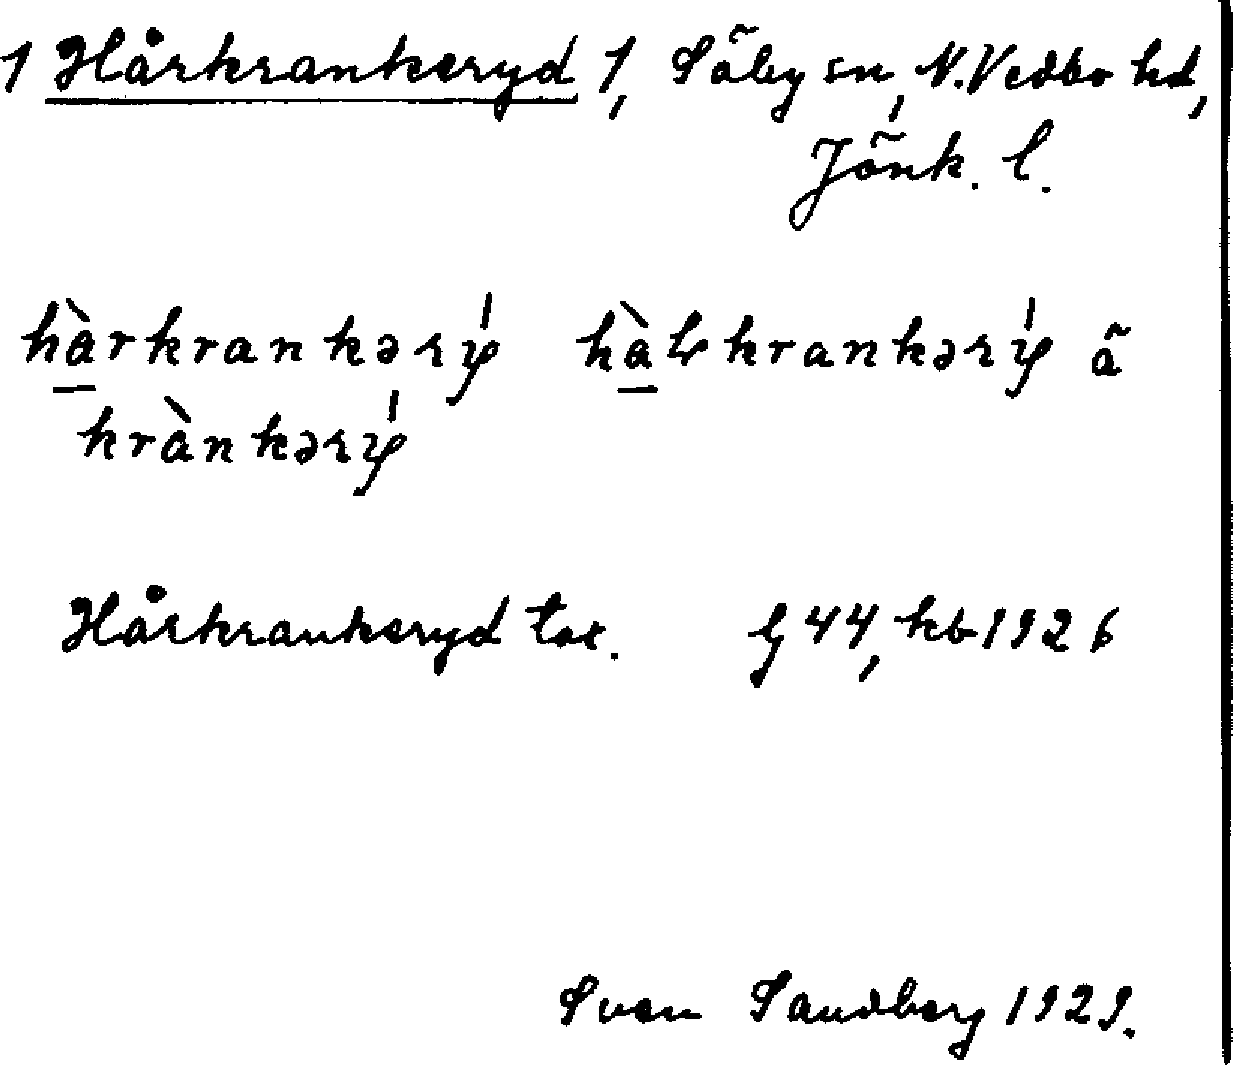 1 Hårkrankeryd 1, Säby sn, N. Vedbo hd,
Jönk. l.
hàrkrankərý hàɫkrankərý å
krànkərý
Hårkrankeryd tor. G 44, kb 1926
Sven Sandberg 1929.